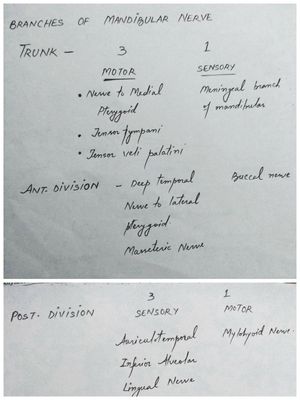 BRANCHES OF MANDIBULAR NERVE
TRUNK – 3 1
MOTOR SENSORY
• Nerve to Medial Meningeal branch
Pterygoid of mandibular
• Tensor tympani
• Tensor veli palatini
ANT. DIVISION – Deep temporal Buccal nerve
Nerve to lateral
pterygoid
Masseteric Nerve
3 1
POST. DIVISION SENSORY MOTOR
Auriculotemporal Mylohyoid Nerve.
Inferior Alveolar
Lingual Nerve